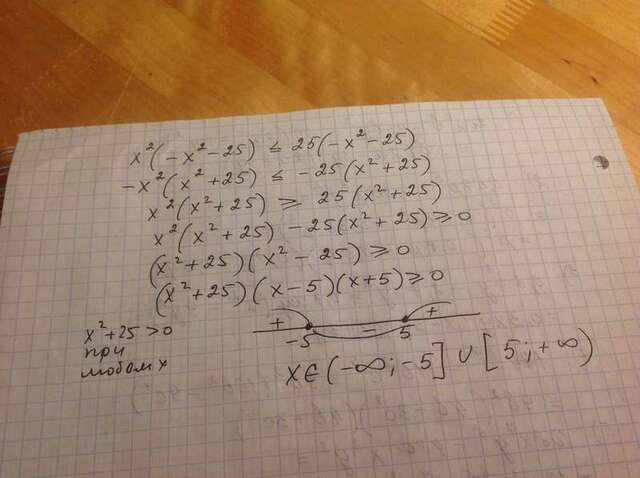 x²(-x²-25) ≤ 25(-x²-25)
-x²(x²+25) ≤ -25(x²+25)
x²(x²+25) ≥ 25(x²+25)
x²(x²+25) - 25(x²+25) ≥ 0
(x²+25)(x²-25) ≥ 0
(x²+25)(x-5)(x+5) ≥ 0
x²+25 > 0
при
любом x
+ - +
-5 5
x ∈ (-∞; -5] ∪ [5; +∞)